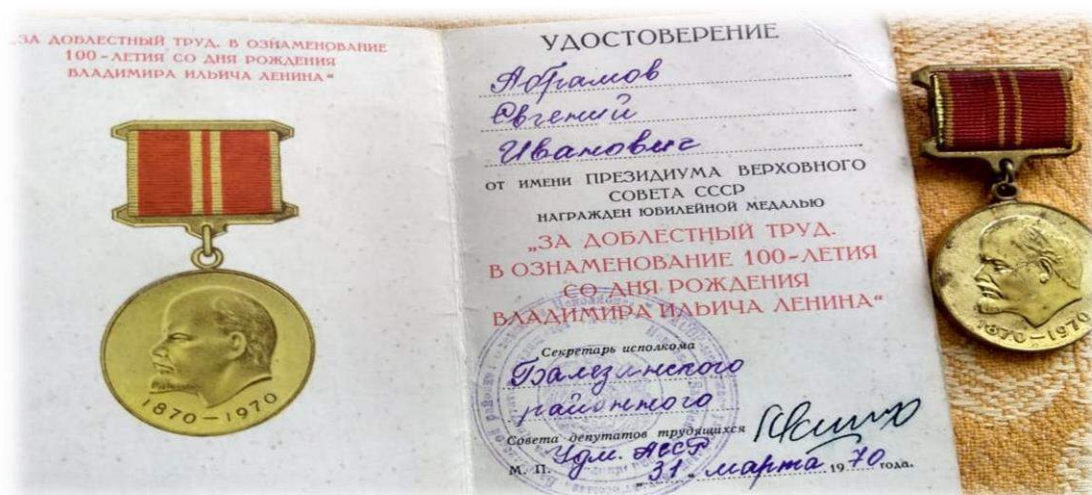 „ЗА ДОБЛЕСТНЫЙ ТРУД. В ОЗНАМЕНОВАНИЕ
100-ЛЕТИЯ СО ДНЯ РОЖДЕНИЯ
ВЛАДИМИРА ИЛЬИЧА ЛЕНИНА“
1870–1970
УДОСТОВЕРЕНИЕ
Абрамов
Евгений
Иванович
ОТ ИМЕНИ ПРЕЗИДИУМА ВЕРХОВНОГО
СОВЕТА СССР
НАГРАЖДЕН ЮБИЛЕЙНОЙ МЕДАЛЬЮ
„ЗА ДОБЛЕСТНЫЙ ТРУД.
В ОЗНАМЕНОВАНИЕ 100-ЛЕТИЯ
СО ДНЯ РОЖДЕНИЯ
ВЛАДИМИРА ИЛЬИЧА ЛЕНИНА“
Секретарь исполкома
Балезинского
районного
Совета депутатов трудящихся
Удм. АССР
М. П. „31“ марта 1970 года.
1870–1970